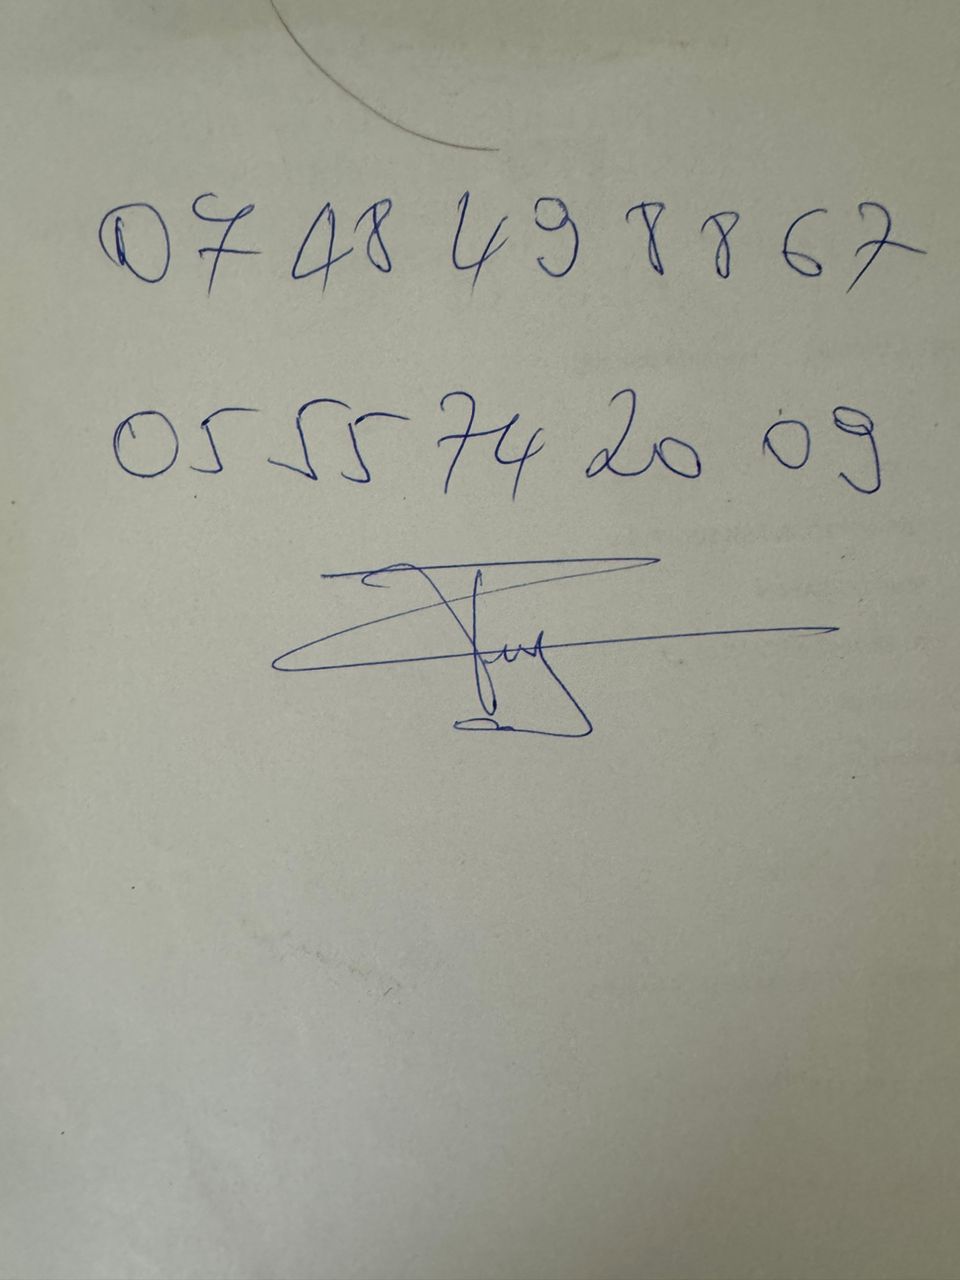 07 48 49 88 67
05 55 74 20 09